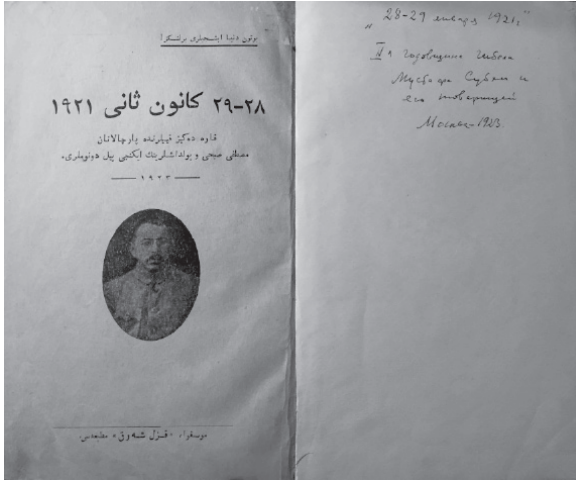 بوتون دنیا ایشجیلری برلشكز!
٢٨-٢٩ كانون ثانی ١٩٢١
قاره ده‌كیز قییلرنده پارچالانان
مصطفی صبحی و یولداشلرینك ایكنجی ییل دونوملری.
١٩٢٣
موسقوا، «قزل شه‌رق» مطبعه‌سی.
„28-29 января 1921„
II я годовщина гибели
Мустафа Субхи и
его товарищей
Москва-1923.